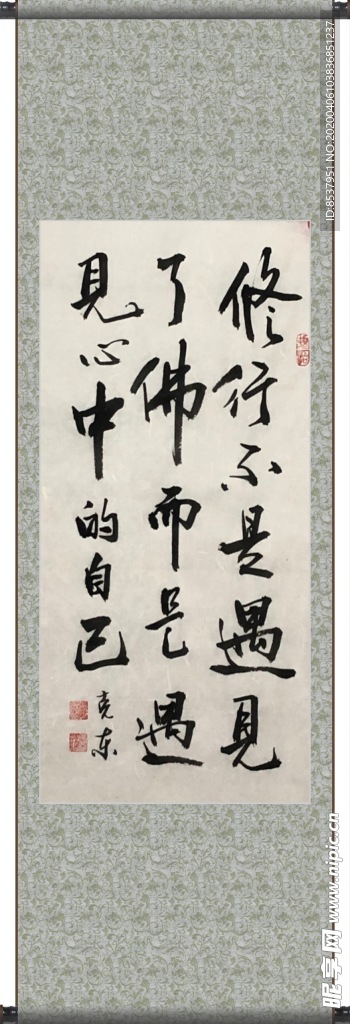 修行不是遇见
了佛而是遇
见心中的自己
克东
ID:8537951 NO:20200406103836851237
昵享网 www.nipic.cn